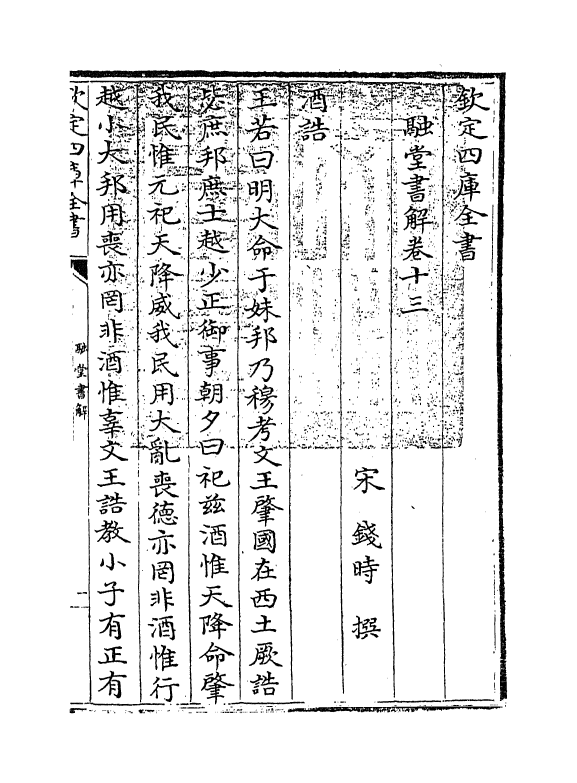 欽定四庫全書
融堂書解卷十三
宋 錢時 撰
酒誥
王若曰明大命于妹邦乃穆考文王肇國在西土厥誥
毖庶邦庶士越少正御事朝夕曰祀兹酒惟天降命肇
我民惟元祀天降威我民用大亂喪德亦罔非酒惟行
越小大邦用喪亦罔非酒惟辜文王誥教小子有正有
欽定四庫全書
融堂書解